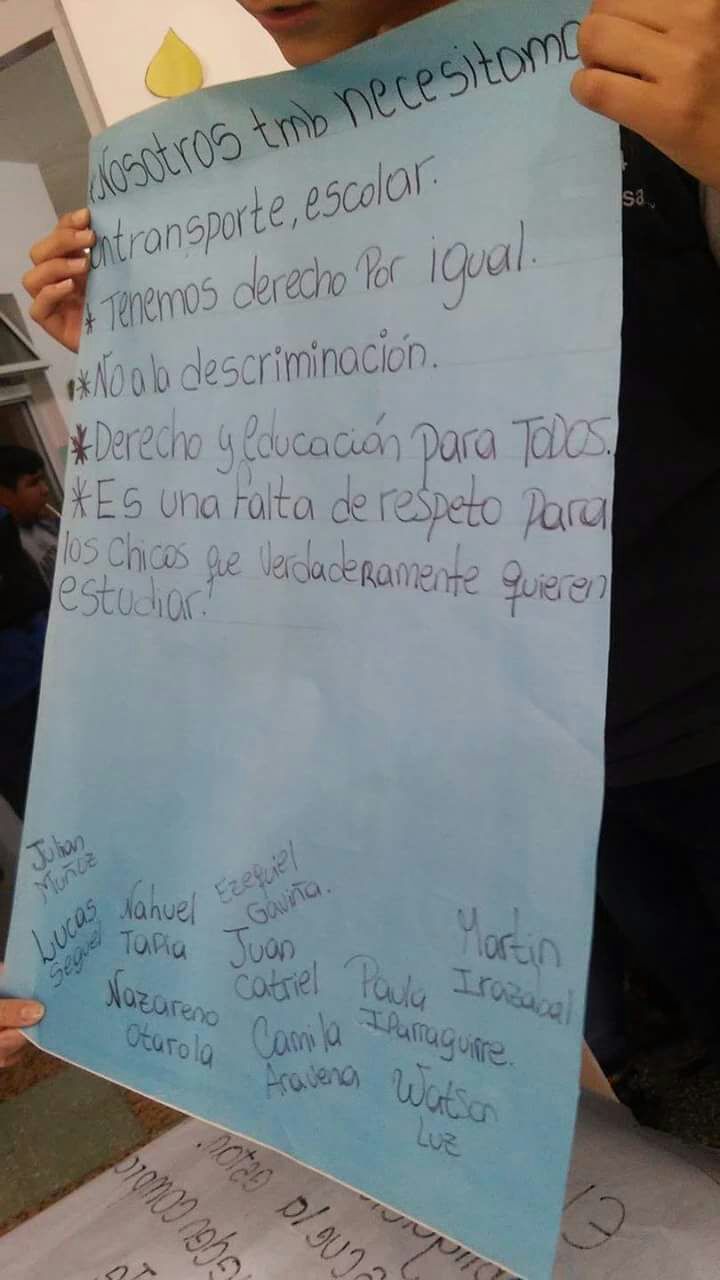 *Nosotros tmb necesitamo
untransporte, escolar.
* Tenemos derecho Por igual.
*No a la descriminación.
*Derecho y educación para TODOS.
*Es una falta de respeto para
los chicos que verdaderamente quieren
estudiar!
Julian
Muñoz
Lucas
Seguel
Nahuel
Tapia
Ezequiel
Gaviña.
Juan
Catriel
Martin
Irazabal
Nazareno
Otarola
Camila
Aravena
Paula
IParraguirre.
Watson
Luz
sa